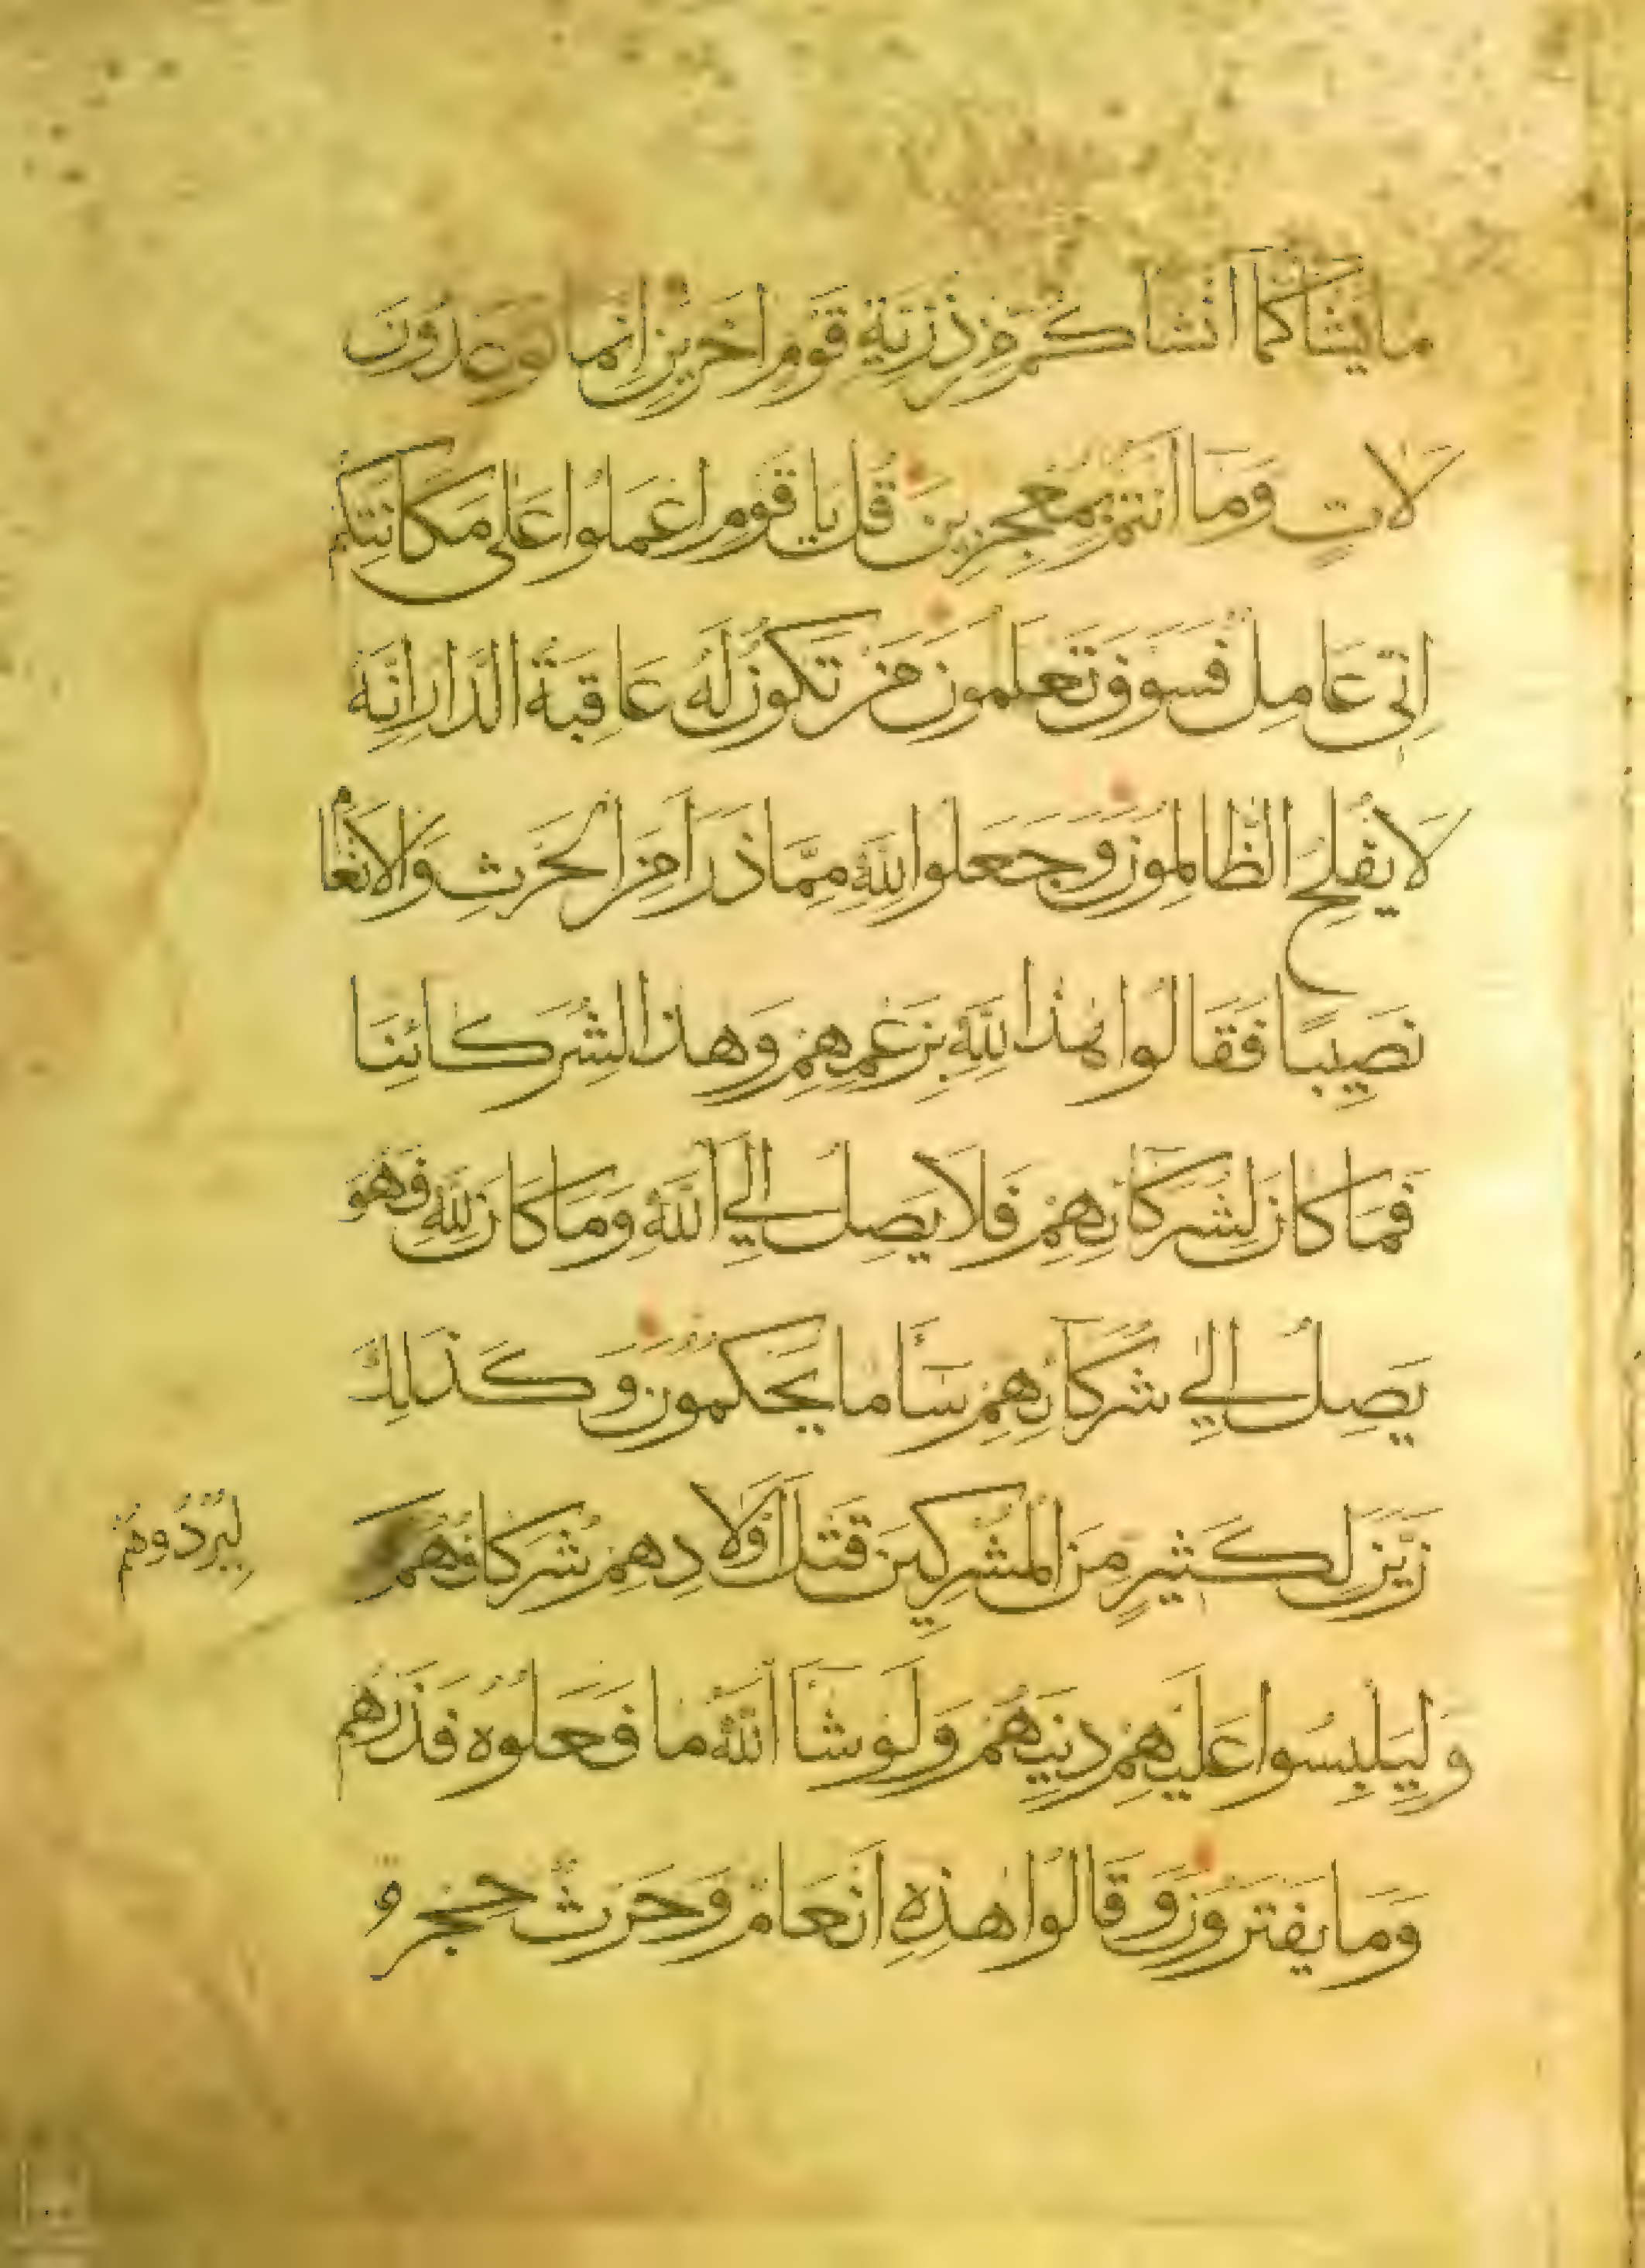 ما يَشَا كَمَا اَنْشَا كُمْ مِنْ ذُرِّيَةِ قَوْمٍ اخَرِينَ اِنَّمَا تُوعَدُونَ
لَاتٍ وَمَا اَنْتُمْ بِمُعْجِزِينَ قُلْ يَا قَوْمِ اعْمَلُوا عَلى مَكَانَتِكُمْ
اِنّى عَامِلٌ فَسَوْفَ تَعْلَمُونَ مَنْ تَكُونُ لَهُ عَاقِبَةُ الدَّارِ اِنَّهُ
لَا يُفْلِحُ الظَّالِمُونَ وَجَعَلُوا لِلّهِ مِمَّا ذَرَا مِنَ الْحَرْثِ وَالْاَنْعَامِ
نَصِيبًا فَقَالُوا هذَا لِلّهِ بِزَعْمِهِمْ وَهذَا لِشُرَكَائِنَا
فَمَا كَانَ لِشُرَكَائِهِمْ فَلَا يَصِلُ اِلَي اللّهِ وَمَا كَانَ لِلّهِ فَهُوَ
يَصِلُ اِلي شُرَكَائِهِمْ سَاَ مَا يَحْكُمُونَ وَكَذلِكَ
زَيَّنَ لِكَثِيرٍ مِنَ الْمُشْرِكِينَ قَتْلَ اَوْلَادِهِمْ شُرَكَاؤُهُمْ
لِيُرْدُوهُمْ
وَلِيَلْبِسُوا عَلَيْهِمْ دِينَهُمْ وَلَوْ شَاَ اللّهُ مَا فَعَلُوهُ فَذَرْهُمْ
وَمَا يَفْتَرُونَ وَقَالُوا هذِهِ اَنْعَامٌ وَحَرْثٌ حِجْرٌ و